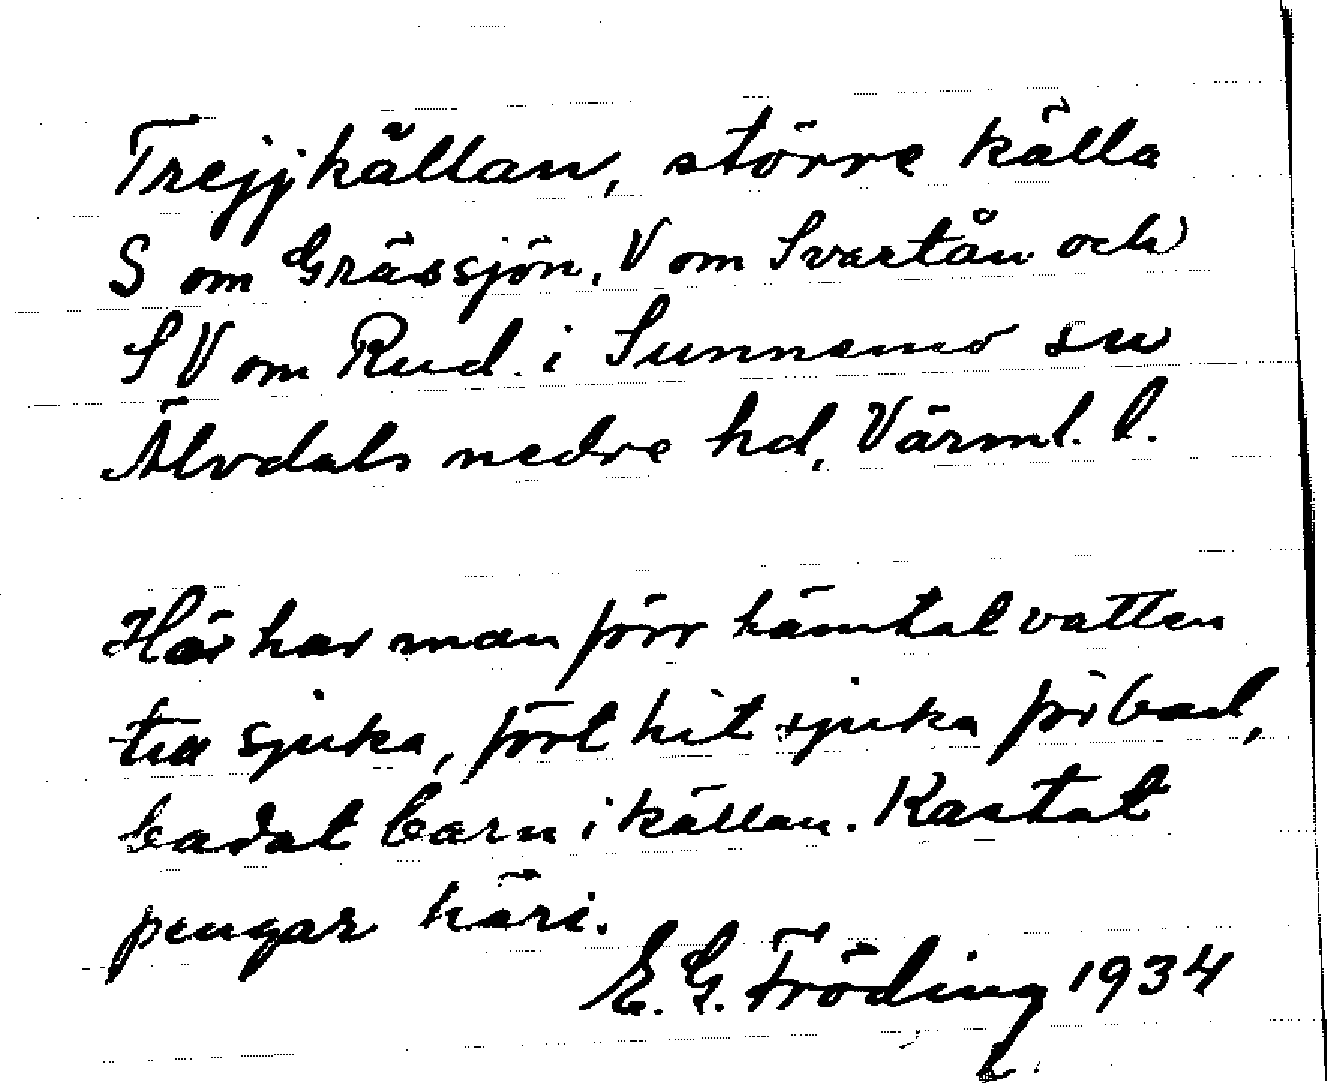 Trejjkällan, större källa
S om Grässjön, V om Svartån och
SV om Rud i Sunnemo sn
Älvdals nedre hd, Värml. l.
Här har man förr hämtat vatten
till sjuka, fört hit sjuka för bad,
badat barn i källan. Kastat
pengar häri.
E. G. Fröding 1934